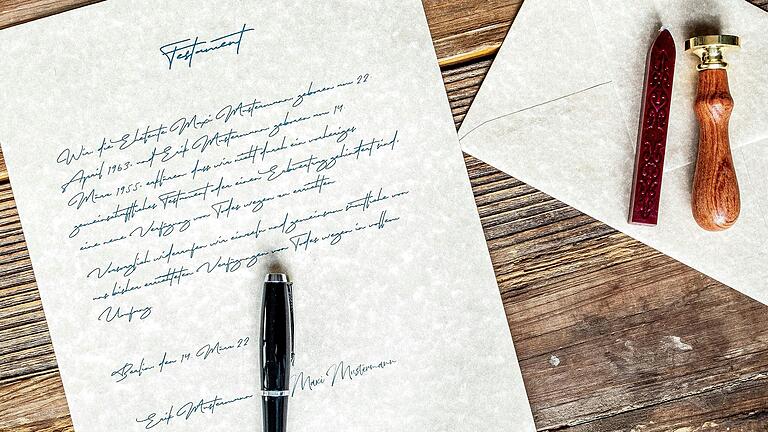 Testament
Wir, die Eheleute Maxi Mustermann, geboren am 22
April 1963. und Erik Mustermann, geboren am 19.
März 1955. erklären, dass wir nicht durch ein vorheriges
gemeinschaftliches Testament oder einen Erbvertrag gehindert sind.
eine neue Verfügung von Todes wegen zu errichten
Vorsorglich widerrufen wir einzeln und gemeinsam sämtliche von
uns bisher errichteten Verfügungen von Todes wegen in vollem
Umfang
Berlin, den 19. März 22
Erik Mustermann Maxi Mustermann